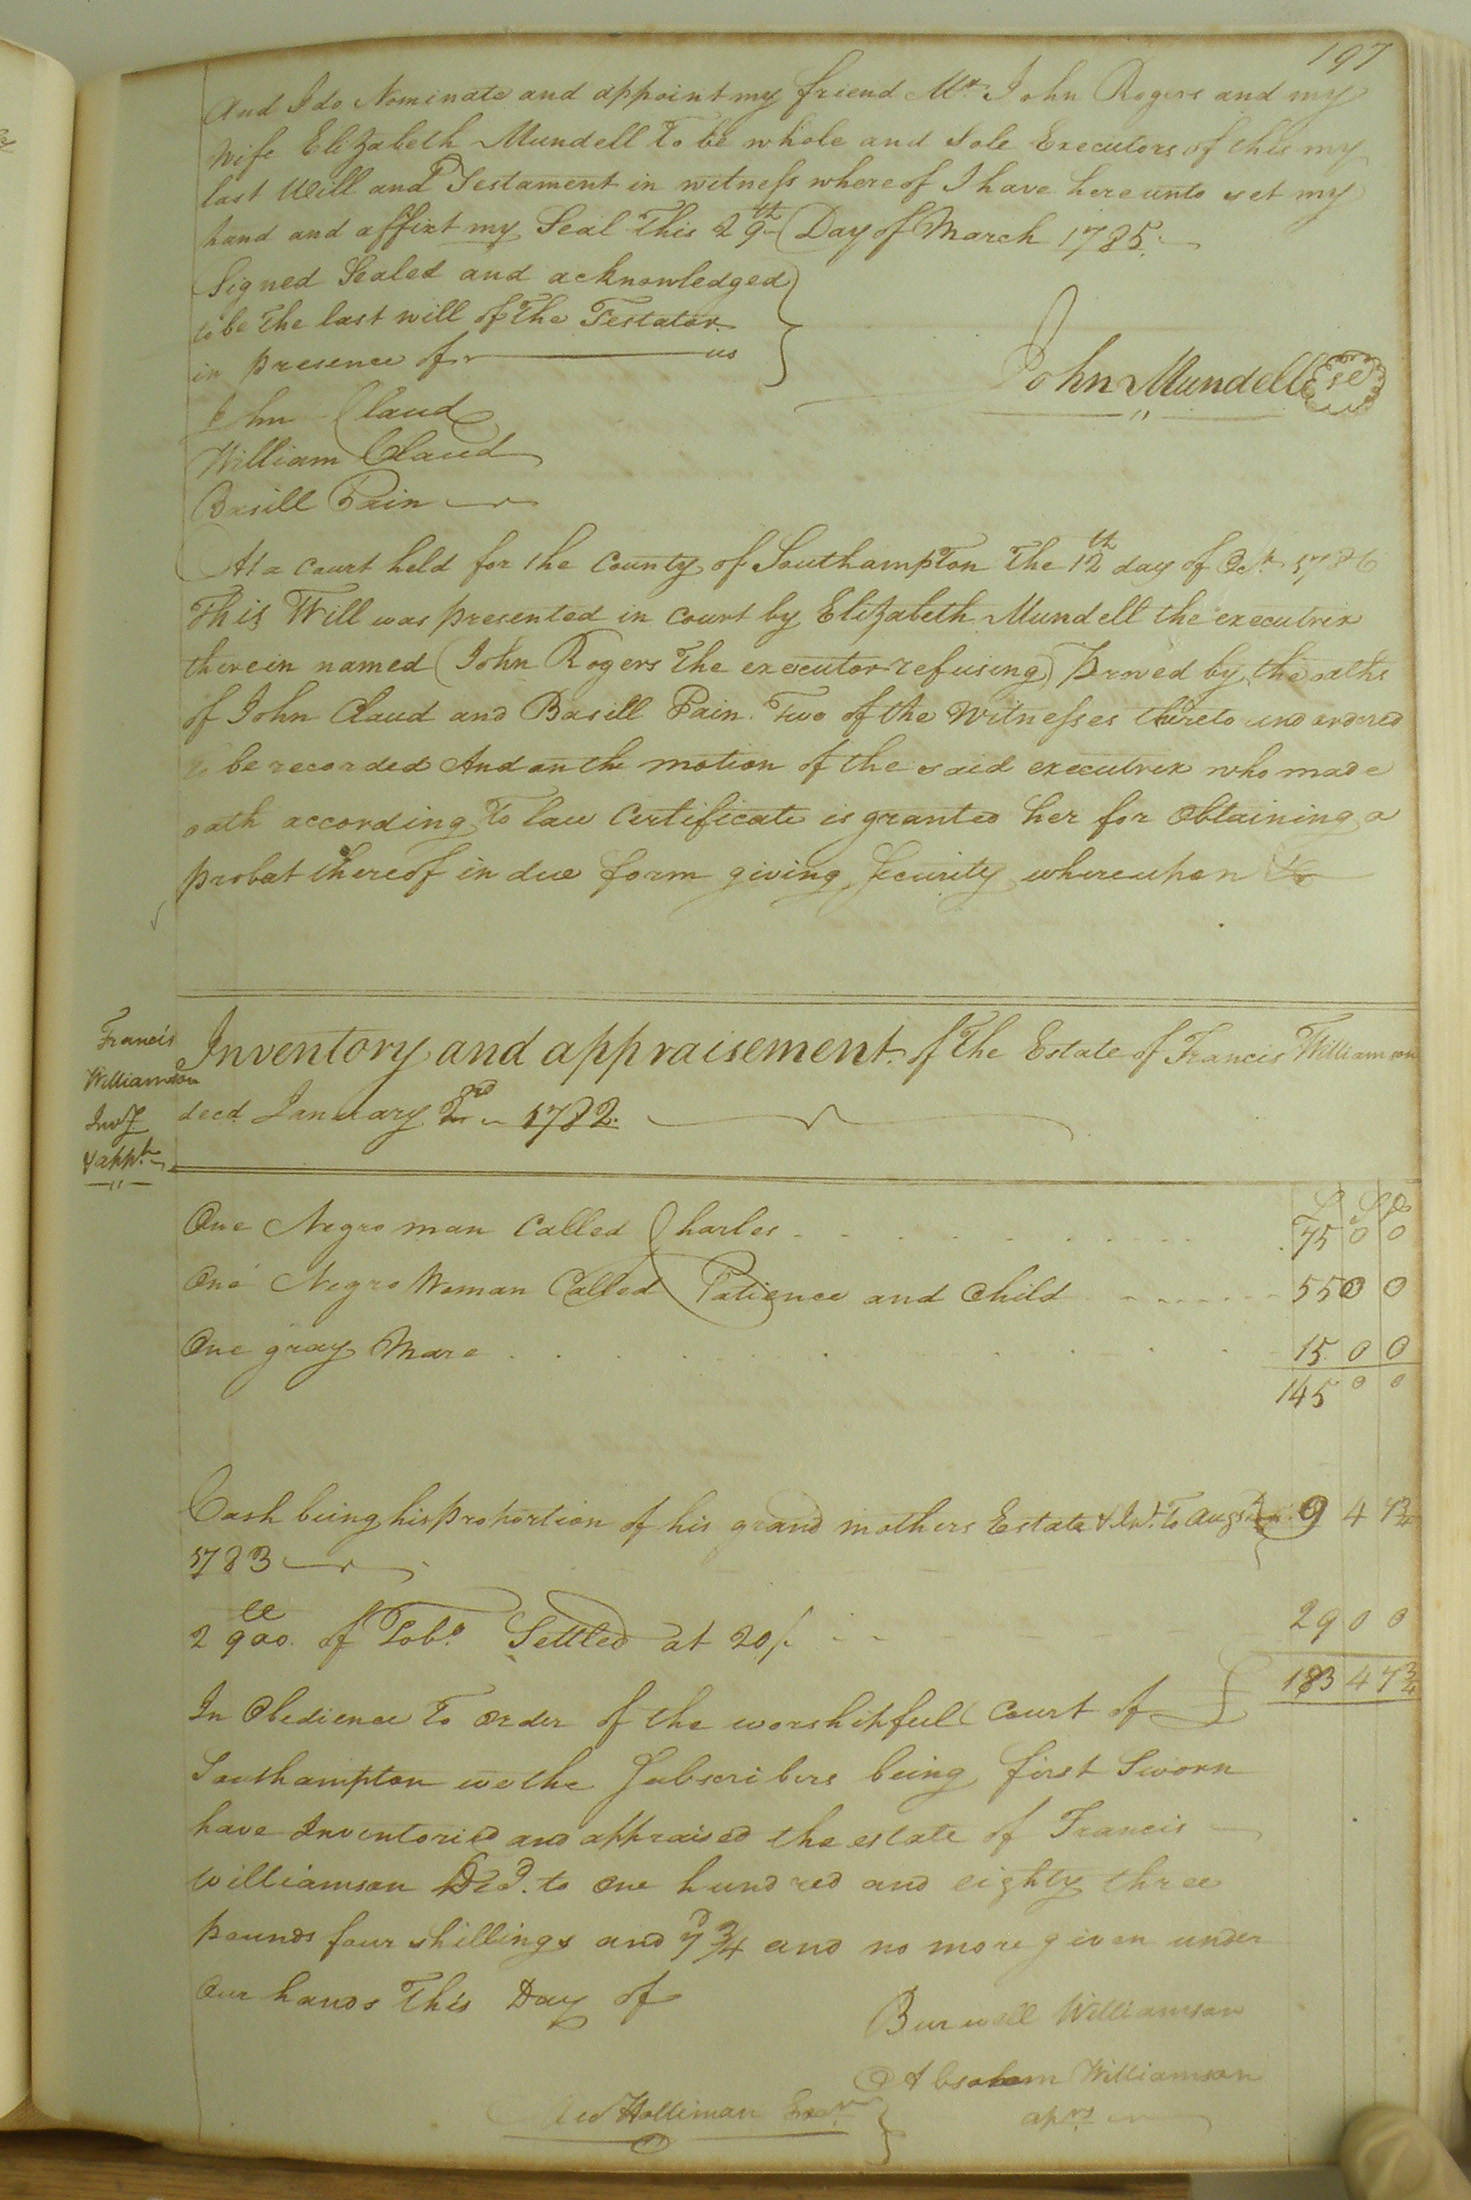 197
And I do Nominate and appoint my friend Mr. John Rogers and my
Wife Elizabeth Mundell To be whole and Sole Executors of this my
last Will and Testament in witness whereof I have hereunto set my
hand and affixt my Seal This 29th Day of March 1785.
Signed Sealed and acknowledged
to be The last will of The Testator
in presence of us
John Mundell Se
John Claud
William Claud
Basill Pain
At a Court held for the County of Southampton The 12th day of Octr. 1786
This Will was presented in Court by Elizabeth Mundell the executrix
therein named (John Rogers The executor refusing) Proved by the oaths
of John Claud and Basill Pain Two of the Witnesses thereto and ordered
to be recorded And on the motion of the said executrix who made
oath according To law Certificate is granted her for Obtaining a
probat thereof in due form giving Security whereupon &c
Francis
Williamson
Invy.
& appt.
Inventory and appraisement of The Estate of Francis Williamson
decd. January 2rd 1782.
£ S D
One Negro man Called Charles 75 0 0
One Negro Woman Called Patience and Child 55 0 0
One gray Mare 15 0 0
145 0 0
Cash being his proportion of his grand mothers Estate & Int. To Augst 9 4 7 3/4
1783
2900 of Tobo. Settled at 20/. 29 0 0
183 4 7 3/4
In Obedience To order of the worshipful Court of
Southampton we the Subscribers being first Sworn
have Inventoried and appraised the estate of Francis
Williamson Decd. to One hundred and eighty three
pounds four shillings and 7d 3/4 and no more given under
Our hands This Day of
Burwell Williamson
Absalom Williamson
Holliman Exer.
aprs